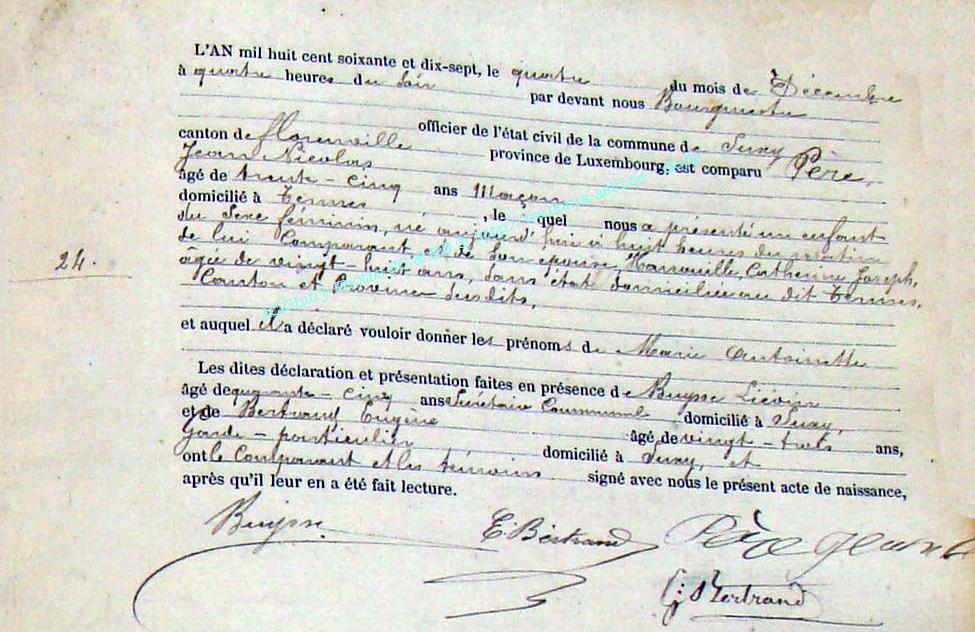 L'AN mil huit cent soixante et dix-sept, le quatre du mois de Décembre
à quatre heures du soir par devant nous Bourgmestre
officier de l'état civil de la commune de Suxy
canton de florenville province de Luxembourg, est comparu Père,
Jean Nicolas
âgé de trente-cinq ans Maçon
domicilié à Termes, le quel nous a présenté un enfant
du Sexe féminin, né aujourd'hui à huit heures du matin
de lui Comparant et de Son épouse, Catherine Joseph,
âgée de vingt-huit ans, sans état domiciliée au dit Termes,
24.
Canton et Province susdits,
et auquel il a déclaré vouloir donner les prénoms de Marie Antoinette
Les dites déclaration et présentation faites en présence de Buysse Liévin
âgé de quarante-cinq ans Secrétaire Communal domicilié à Suxy,
et de Bertrand Eugène âgé de vingt-trois ans,
Garde-particulier domicilié à Suxy, et
ont le Comparant et les témoins signé avec nous le présent acte de naissance,
après qu'il leur en a été fait lecture.
Buysse E. Bertrand Père
Bertrand